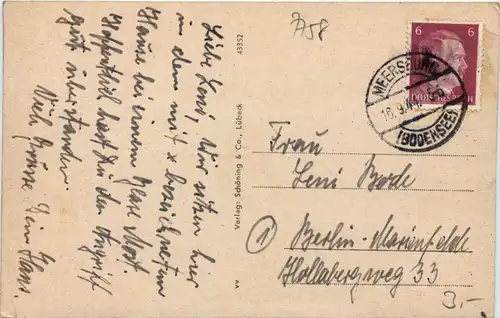 7758
Liebe Leni, Wir sitzen hier
in dem mit x bezeichneten
Hause bei einem Glas Most.
Hoffentlich hast Du den Angriff
gut überstanden.
Viele Grüsse Dein Hans.
43352
Verlag: Schöning & Co., Lübeck
6 6
DEUTSCHES REICH
MEERSBURG
(BODENSEE)
Frau
Leni Bode
1 Berlin-Marienfelde
Hollabergweg 33
3.-